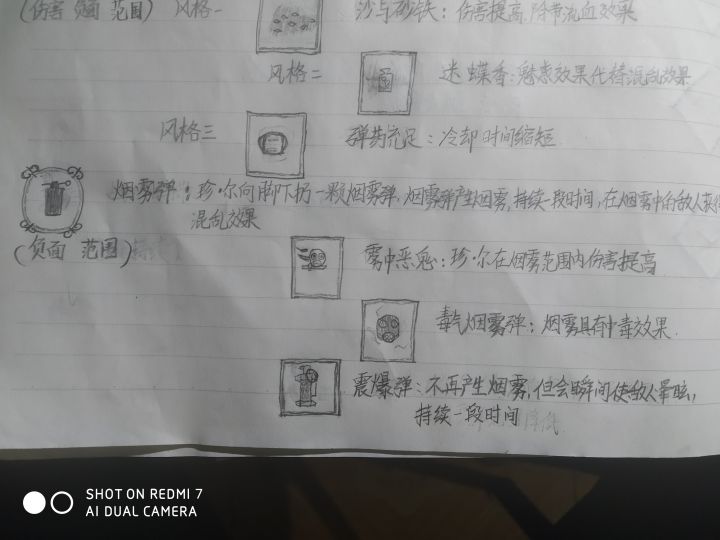 (伤害 负面 范围) 风格一 沙与砂铁：伤害提高，附带流血效果
风格二 迷蝶香：魅惑效果代替混乱效果
风格三 弹药充足：冷却时间缩短
烟雾弹：珍·尔向脚下扔一颗烟雾弹，烟雾弹产生烟雾，持续一段时间，在烟雾中的敌人获得
混乱效果
(负面 范围)
雾中恶鬼：珍·尔在烟雾范围内伤害提高
毒气烟雾弹：烟雾具有中毒效果.
震爆弹：不再产生烟雾，但会瞬间使敌人晕眩，
持续一段时间
SHOT ON REDMI 7
AI DUAL CAMERA